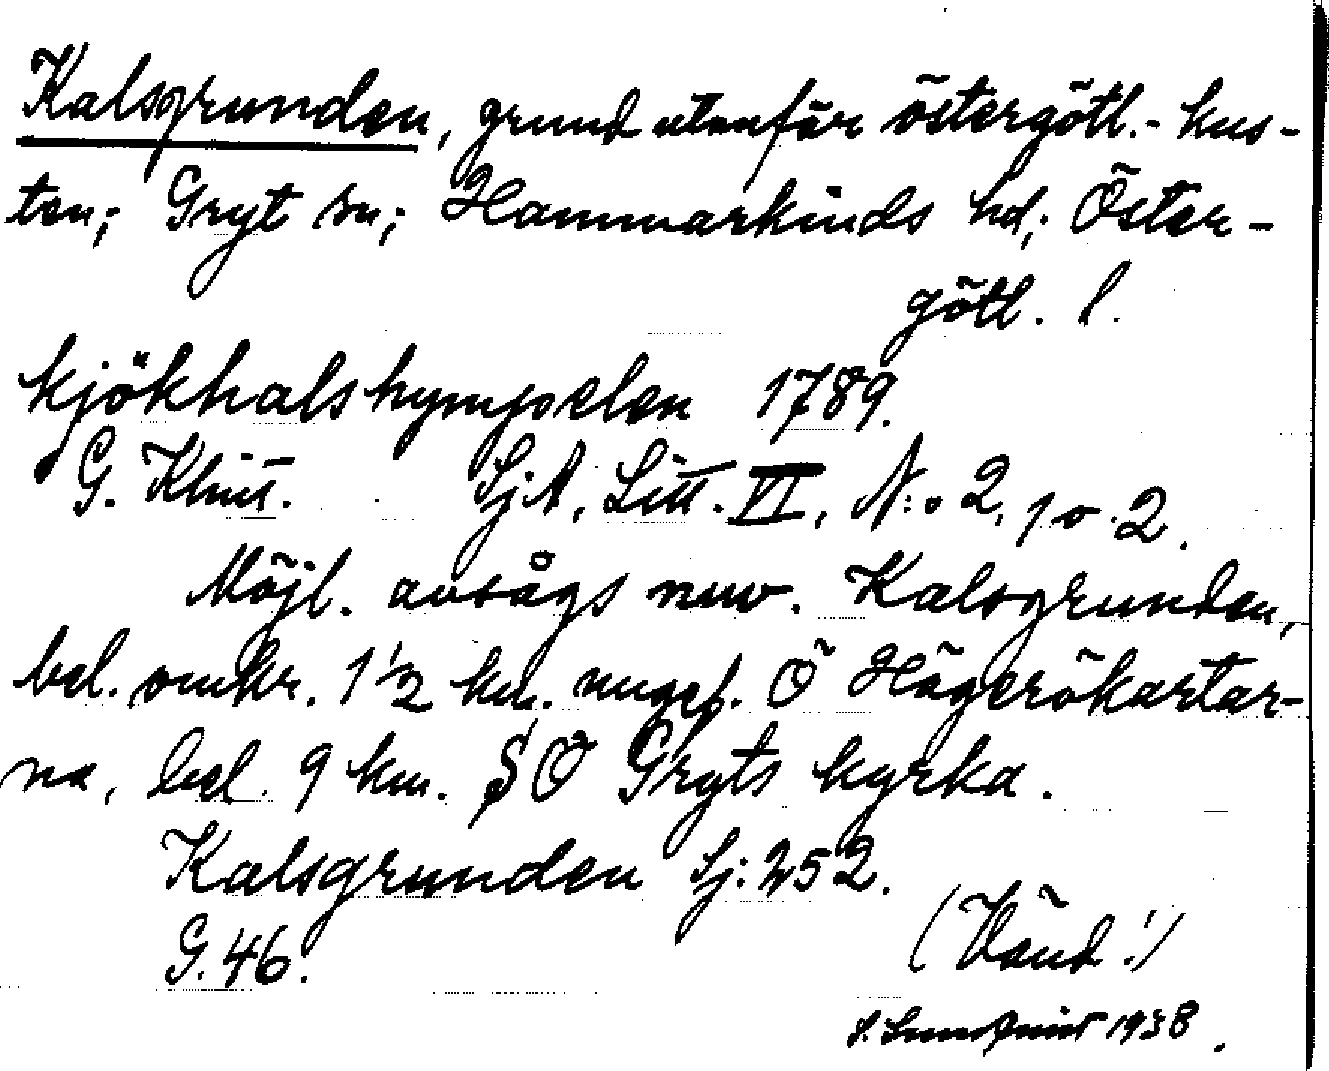 Kalsgrunden, grund utanför östergötl.- kus-
ten; Gryt sn; Hammarkinds hd; Öster-
götl. l.
kjökhalshympelen 1789.
G. Klint. SjA, Litt. VI, N:o 2, p. 2.
Möjl. avsågs nuv. Kalsgrunden,
bel. omkr. 1 1/2 km. ungef. Ö Hägerökartar-
na, bel. 9 km. SÖ Gryts kyrka.
Kalsgrunden Sj: 252.
G. 46.
(Vänd!)
S. Lundqvist 1938.